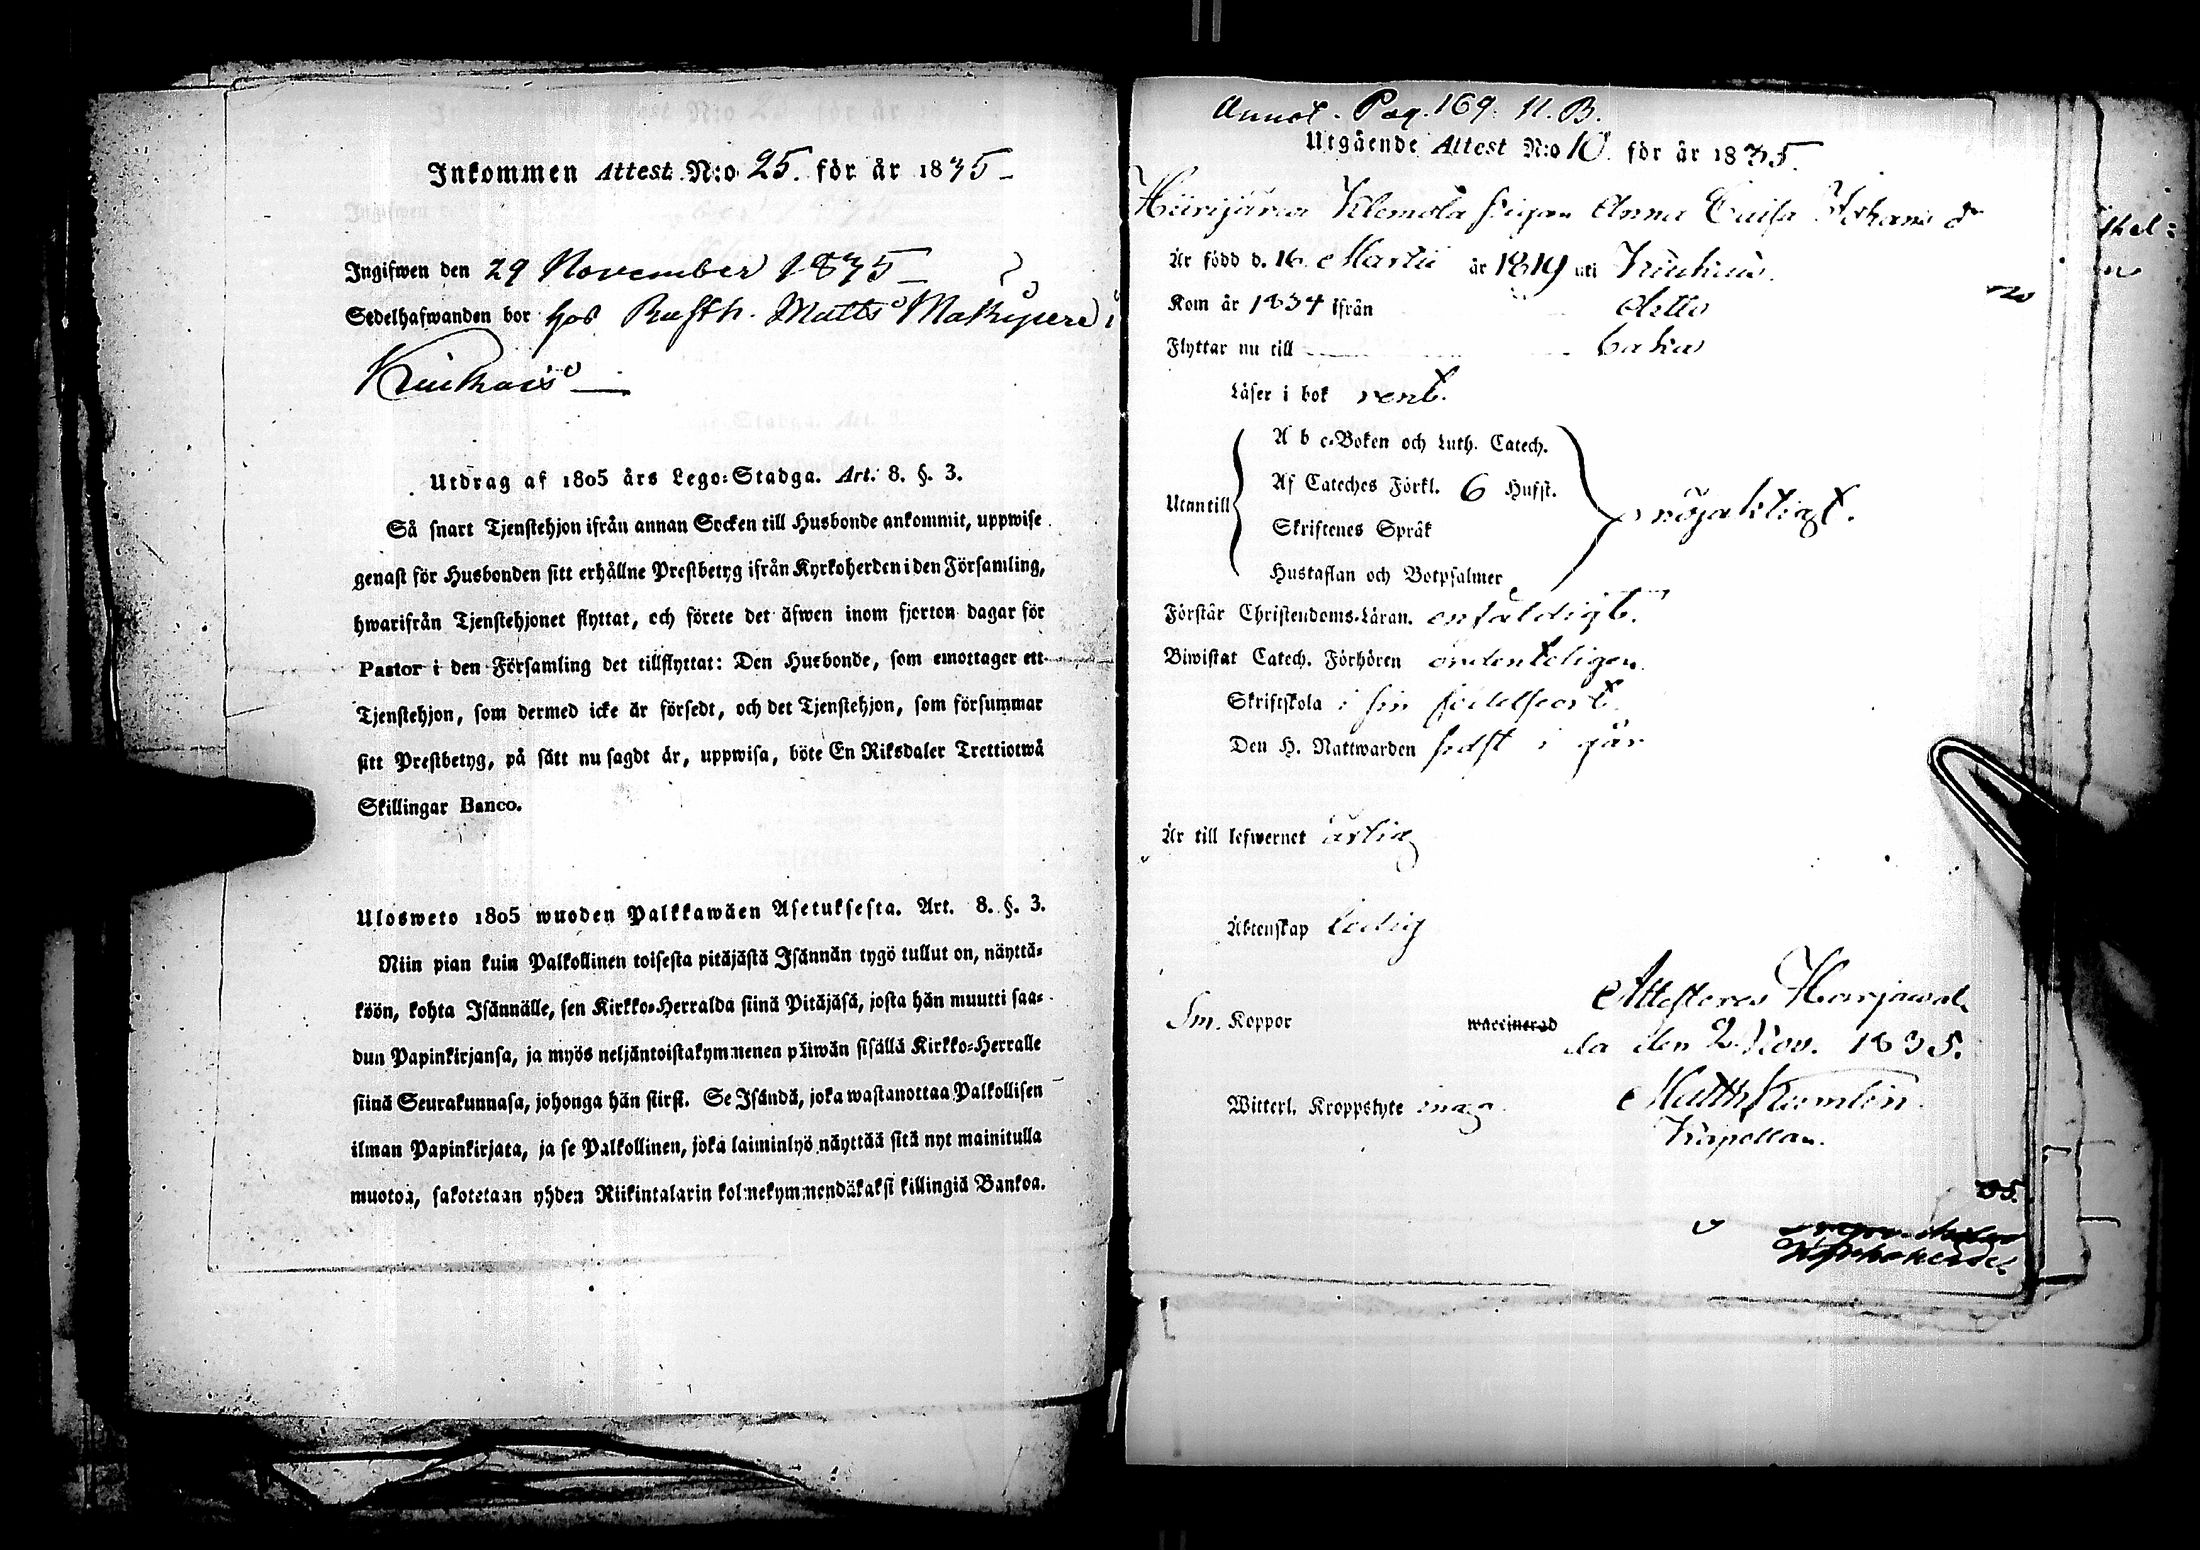 Inkommen Attest N:o 25. för år 1835
Ingifwen den 29 November 1835
Sedelhafwanden bor hos Rusth. Matts Makipere i
Kiukais
Utdrag af 1805 års Lego-Stadga. Art. 8. §. 3.
Så snart Tjenstehjon ifrån annan Socken till Husbonde ankommit, uppwise
genast för Husbonden sitt erhållne Prestbetyg ifrån Kyrkoherden i den Församling,
hwarifrån Tjenstehjonet flyttat, och förete det äfwen inom fjorton dagar för
Pastor i den Församling det tillflyttat: Den Husbonde, som emottager ett
Tjenstehjon, som dermed icke är försedt, och det Tjenstehjon, som försummar
sitt Prestbetyg, på sätt nu sagdt är, uppwisa, böte En Riksdaler Trettiotwå
Skillingar Banco.
Ulosweto 1805 wuoden Palkkawäen Asetuksesta. Art. 8. §. 3.
Niin pian kuin Palkollinen toisesta pitäjästä Isännän tygö tullut on, näyttä-
köön, kohta Isännälle, sen Kirkko-Herralda siinä Pitäjäsä, josta hän muutti saa-
dun Papinkirjansa, ja myös neljäntoistakymmenen päiwän sisällä Kirkko-Herralle
siinä Seurakunnasa, johonga hän siirst. Se Isändä, joka wastanottaa Palkollisen
ilman Papinkirjata, ja se Palkollinen, joka laiminlyö näyttää sitä nyt mainitulla
muotoa, sakotetaan yhden Riikintalarin kolmekymmendäkaksi killingiä Bankoa.
Annot. Pag. 169. N. B.
Utgående Attest N:o 10. för år 1835.
Hiirijärvi Klemola pigan Anna Caisa Johans dr
Är född d. 16 Martii år 1819 uti Kiukais.
Kom år 1834 ifrån ditto
Flyttar nu till baka
Läser i bok rent.
Utantill
A b c-Boken och Luth. Catech.
Af Cateches Förkl. 6 Hufst.
Skriftenes Språk
Hustaflan och Botpsalmer
nöjaktigt.
Förstår Christendoms-Läran. enfaldigt.
Biwistat Catech. Förhören ordenteligen
Skriftskola i sin födelseort.
Den H. Nattwarden sidst i går
Är till lefwernet ärlig
Äktenskap ledig
Sm. Koppor waccinerad
Attesteres Harjawal
la den 2 Nov. 1835.
Witterl. Kroppslyte inga
Matth
Kapellan.
35.